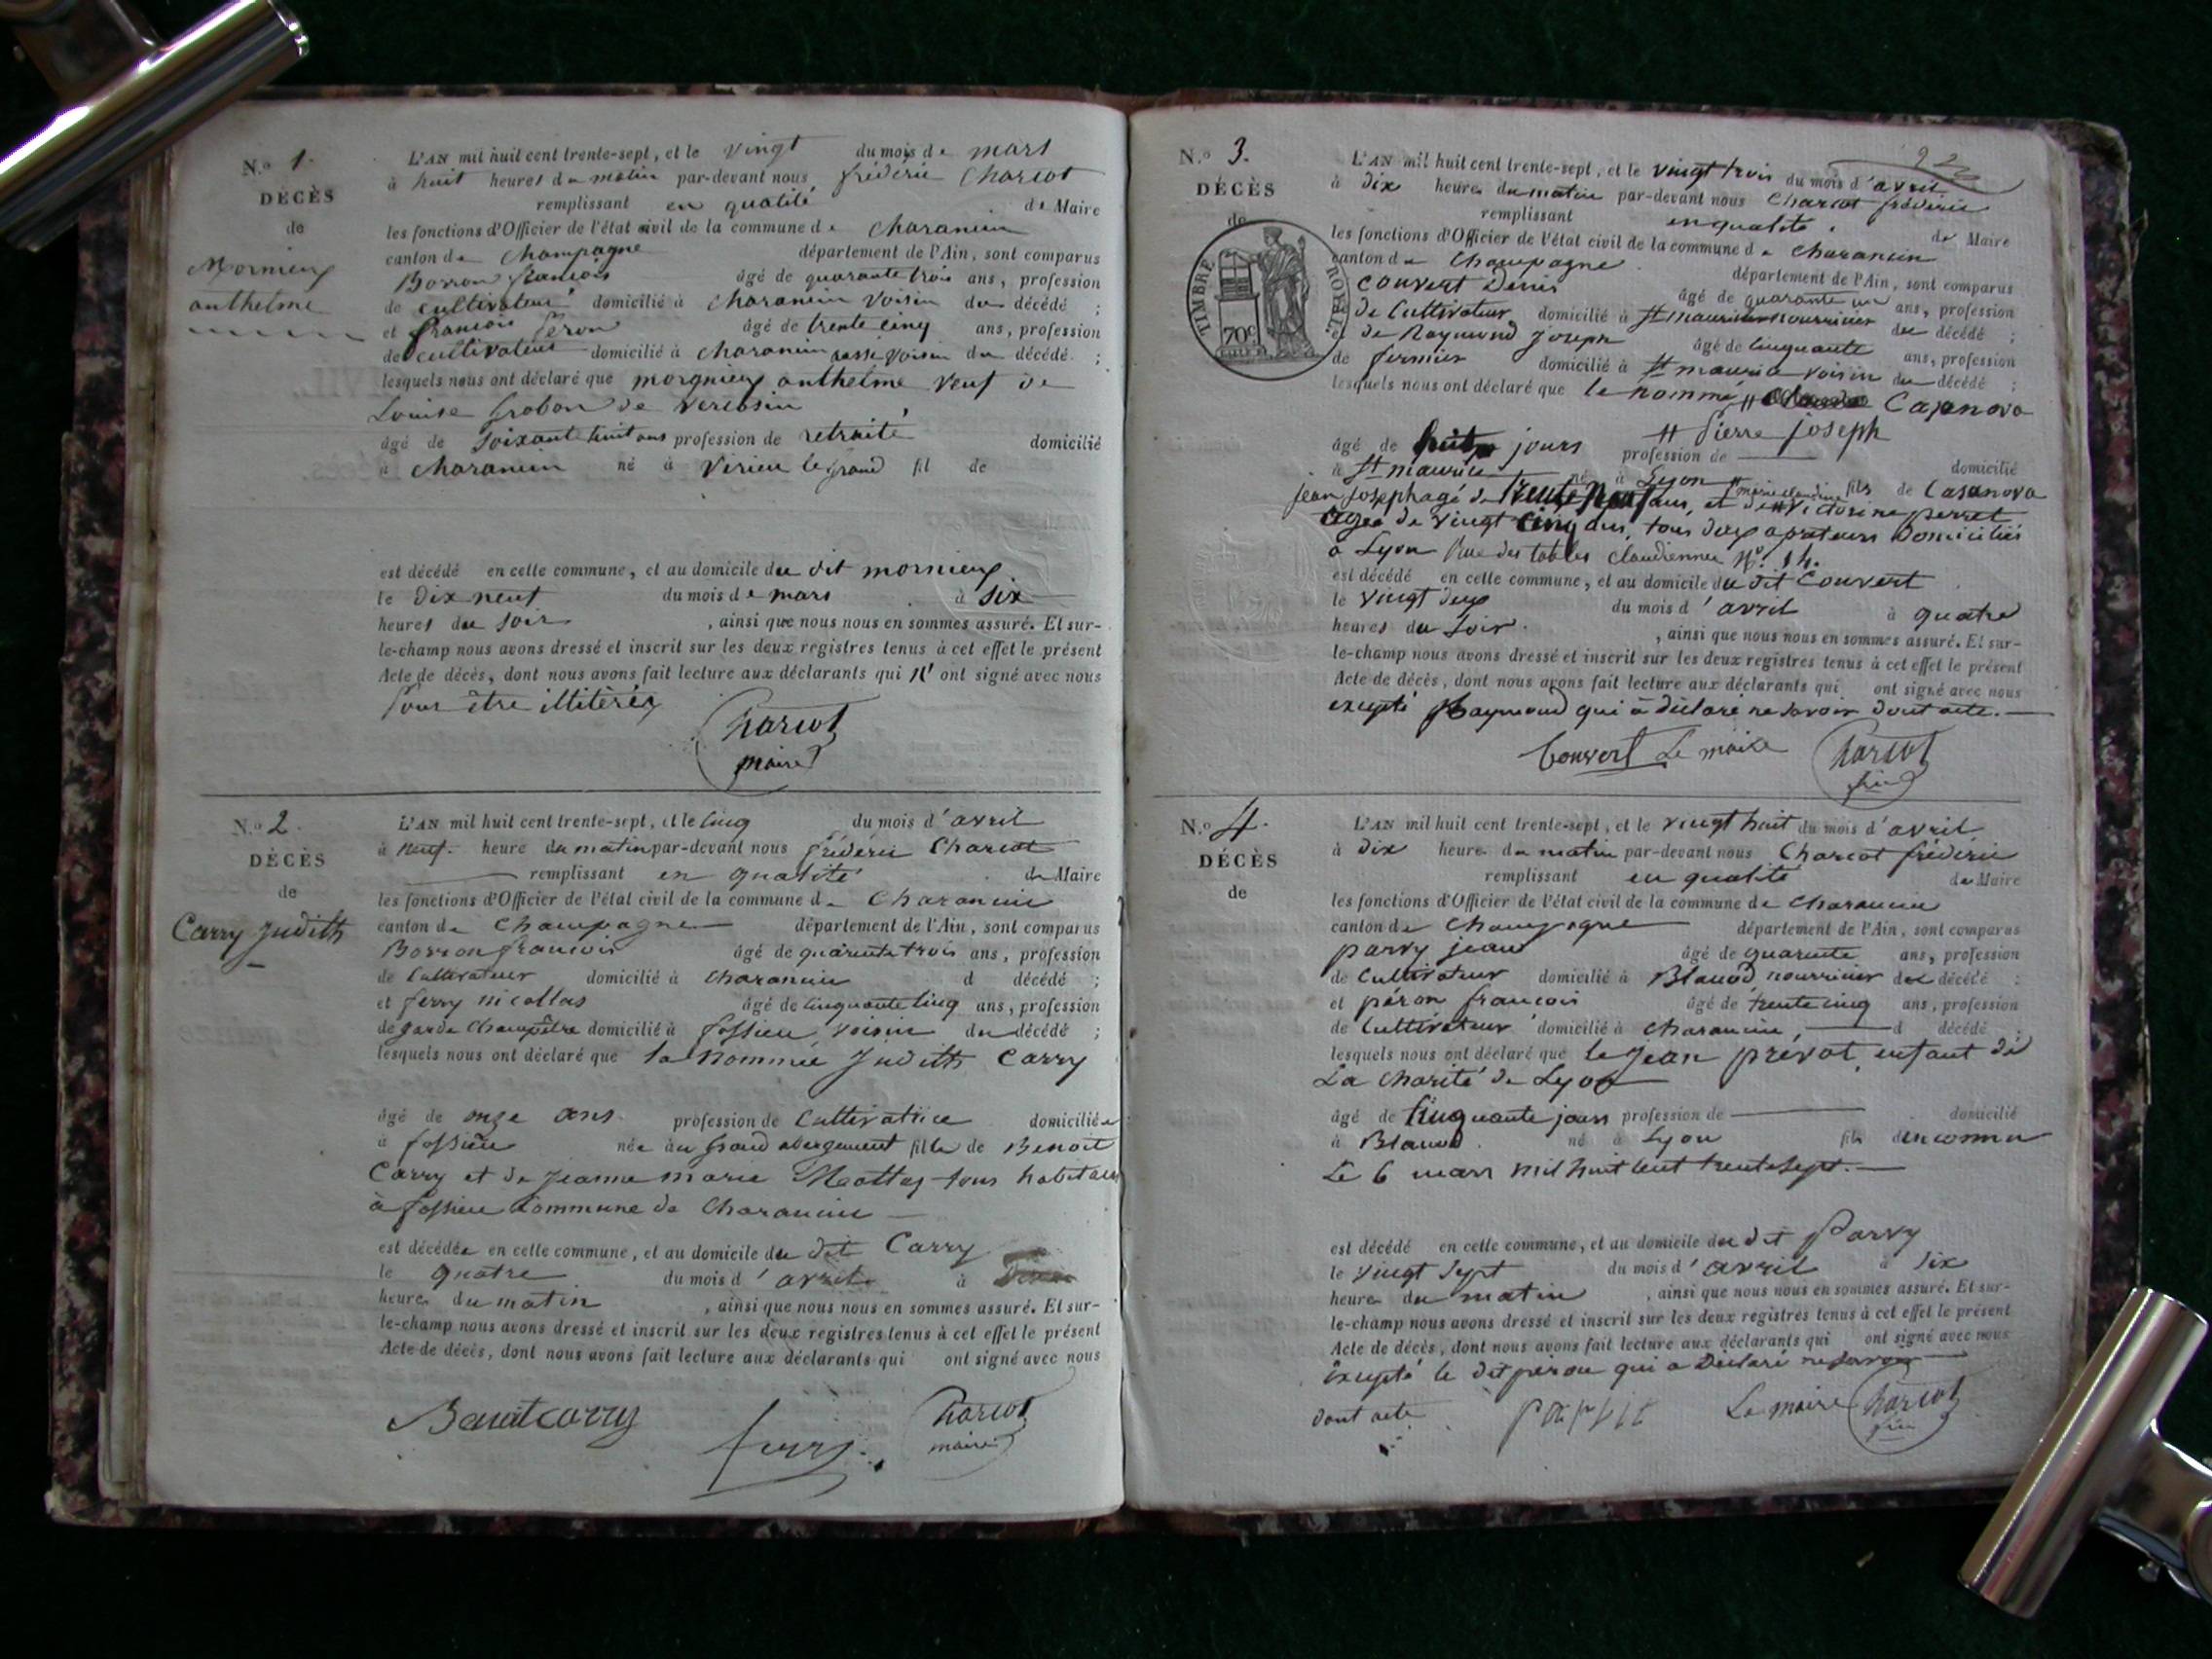 N.º 1.
DÉCÈS
de
Mornieux
anthelme
L'AN mil huit cent trente-sept, et le vingt du mois de mars
à huit heures du matin par-devant nous fréderic Charcot
remplissant en qualité de Maire
les fonctions d'Officier de l'état civil de la commune de Charancin
canton de Champagne département de l'Ain, sont comparus
Borron francois âgé de quarante trois ans, profession
de cultivateur domicilié à Charancin voisin du décédé ;
et francois Peron âgé de trente cinq ans, profession
de cultivateur domicilié à Charancin aussi voisin du décédé ;
lesquels nous ont déclaré que morgnieux anthelme veuf de
Louise grobon de
âgé de soixante huit ans profession de retraité domicilié
à Charancin né à Virieu le grand fil de
est décédé en cette commune, et au domicile du dit mornieux
le dix neuf du mois de mars à six
heures du soir, ainsi que nous nous en sommes assuré. Et sur-
le-champ nous avons dressé et inscrit sur les deux registres tenus à cet effet le présent
Acte de décès, dont nous avons fait lecture aux déclarants qui n' ont signé avec nous
Pour être illitérés
Charcot
maire
N.º 2.
DÉCÈS
de
Carry Judith
L'AN mil huit cent trente-sept, et le cinq du mois d'avril
à neuf heure du matin par-devant nous fréderic Charcot
remplissant en qualité de Maire
les fonctions d'Officier de l'état civil de la commune de Charancin
canton de Champagne département de l'Ain, sont comparus
Borron francois âgé de quarente trois ans, profession
de Cultivateur domicilié à Charancin d décédé ;
et ferry nicollas âgé de cinquante cinq ans, profession
de garde Champêtre domicilié à fossieu, voisin du décédé ;
lesquels nous ont déclaré que la nommée Judith Carry
âgé de onze ans profession de Cultivatrice domiciliée
à fossieu née au Grand abergement fille de Benoit
Carry et de Jeanne marie tous habitans
à fossieu Commune de Charancin
est décédée en cette commune, et au domicile du dit Carry
le quatre du mois d'avril à
heure du matin, ainsi que nous nous en sommes assuré. Et sur-
le-champ nous avons dressé et inscrit sur les deux registres tenus à cet effet le présent
Acte de décès, dont nous avons fait lecture aux déclarants qui ont signé avec nous
Benoit carry ferry Charcot
maire
22
N.º 3.
DÉCÈS
de
TIMBRE ROYAL.
70c
L'AN mil huit cent trente-sept, et le vingt trois du mois d'avril
à dix heures du matin par-devant nous Charcot fréderic
remplissant en qualité de Maire
les fonctions d'Officier de l'état civil de la commune de Charancin
canton de Champagne département de l'Ain, sont comparus
Couvert Denis âgé de quarante un ans, profession
de Cultivateur domicilié à St maurice nourricier du décédé ;
et de Raymond Joseph âgé de cinquante ans, profession
de fermier domicilié à St maurice voisin du décédé ;
lesquels nous ont déclaré que le nommé # Casanova
# Pierre Joseph
âgé de huit jours profession de domicilié
à St maurice né à Lyon fils de Casanova
jean Joseph agé de trente neuf ans, et de # Victorine perret
# marie claudine
agée de vingt cinq ans, tous deux domiciliés
à Lyon Rue des tables claudiennes N.º 14.
est décédé en cette commune, et au domicile du dit Couvert
le vingt deux du mois d'avril à quatre
heures du soir, ainsi que nous nous en sommes assuré. Et sur-
le-champ nous avons dressé et inscrit sur les deux registres tenus à cet effet le présent
Acte de décès, dont nous avons fait lecture aux déclarants qui ont signé avec nous
excepté Raymond qui à déclaré ne savoir dont acte.
Couvert Le maire Charcot
N.º 4.
DÉCÈS
de
L'AN mil huit cent trente-sept, et le vingt huit du mois d'avril
à dix heure du matin par-devant nous Charcot fréderic
remplissant en qualité de Maire
les fonctions d'Officier de l'état civil de la commune de Charancin
canton de Champagne département de l'Ain, sont comparus
parvy jean âgé de quarente ans, profession
de Cultivateur domicilié à Blanod nourricier du décédé ;
et péron francois âgé de trente cinq ans, profession
de Cultivateur domicilié à Charancin, d décédé ;
lesquels nous ont déclaré que le jean prévot, enfant de
La Charité de Lyon
âgé de Cinquante jours profession de domicilié
à Blanod né à Lyon fils d'inconnu
Le 6 mars mil huit cent trente sept.
est décédé en cette commune, et au domicile du dit Parvy
le vingt sept du mois d'avril à six
heure du matin, ainsi que nous nous en sommes assuré. Et sur-
le-champ nous avons dressé et inscrit sur les deux registres tenus à cet effet le présent
Acte de décès, dont nous avons fait lecture aux déclarants qui ont signé avec nous
excepté le dit péron qui a déclaré ne savoir
dont acte Le maire Charcot